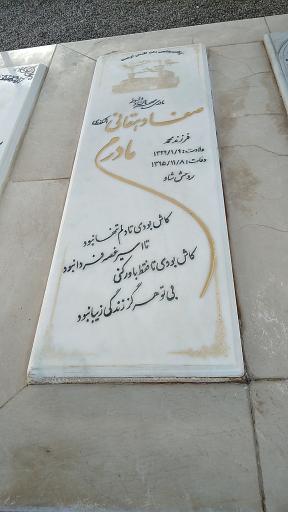 صفا دهقانی
مادرم
فرزند محمد
ولادت: ۱۳۲۹/۱/۹
وفات: ۱۳۹۵/۱۱/۸
روحش شاد
کاش بودی تا دلم تنها نبود
تا اسیر غصه فردا نبود
کاش بودی تا فقط باور کنی
بی تو هرگز زندگی زیبا نبود